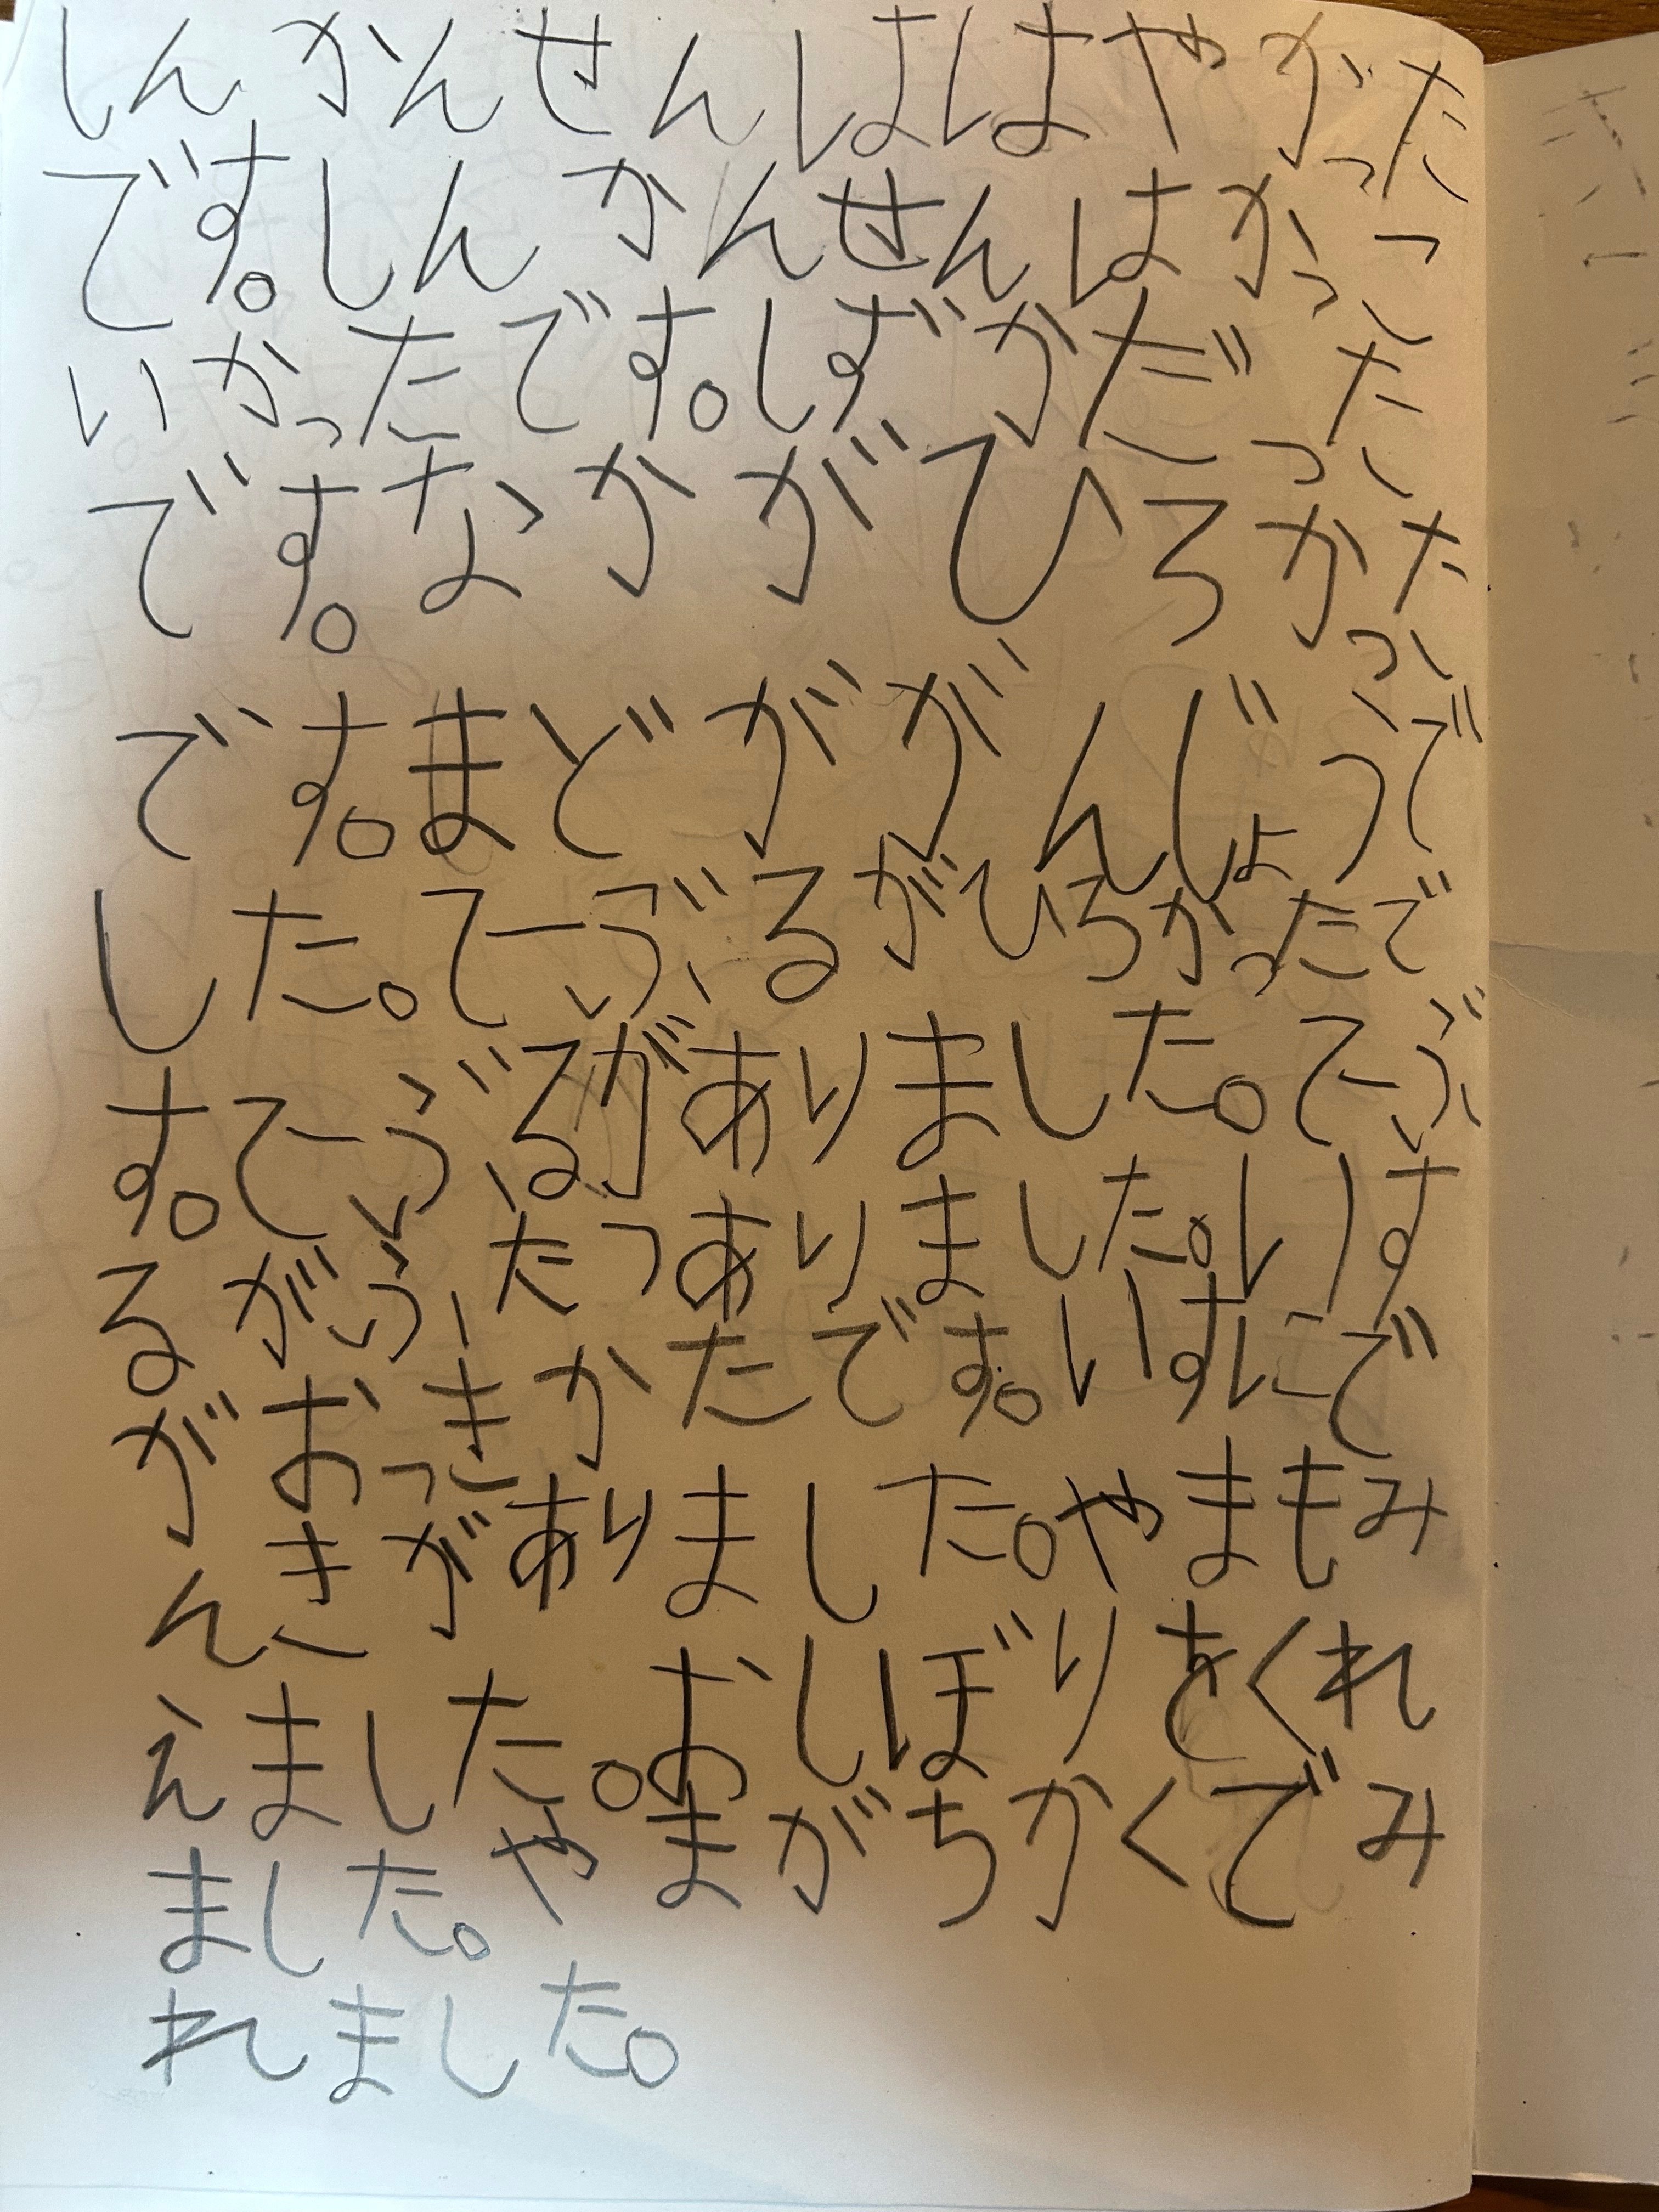 しんかんせんははやかった
です。しんかんせんはかっこ
いかったです。しずかだった
です。なかがひろかった
です。まどががんじょうで
した。てーぶるがひろかったで
す。てーぶるがありました。てーぶ
るがふたつありました。いす
がおっきかたです。いすにで
んきがありました。やまもみ
えました。おしぼりをくれ
ました。やまがちかくでみ
れました。